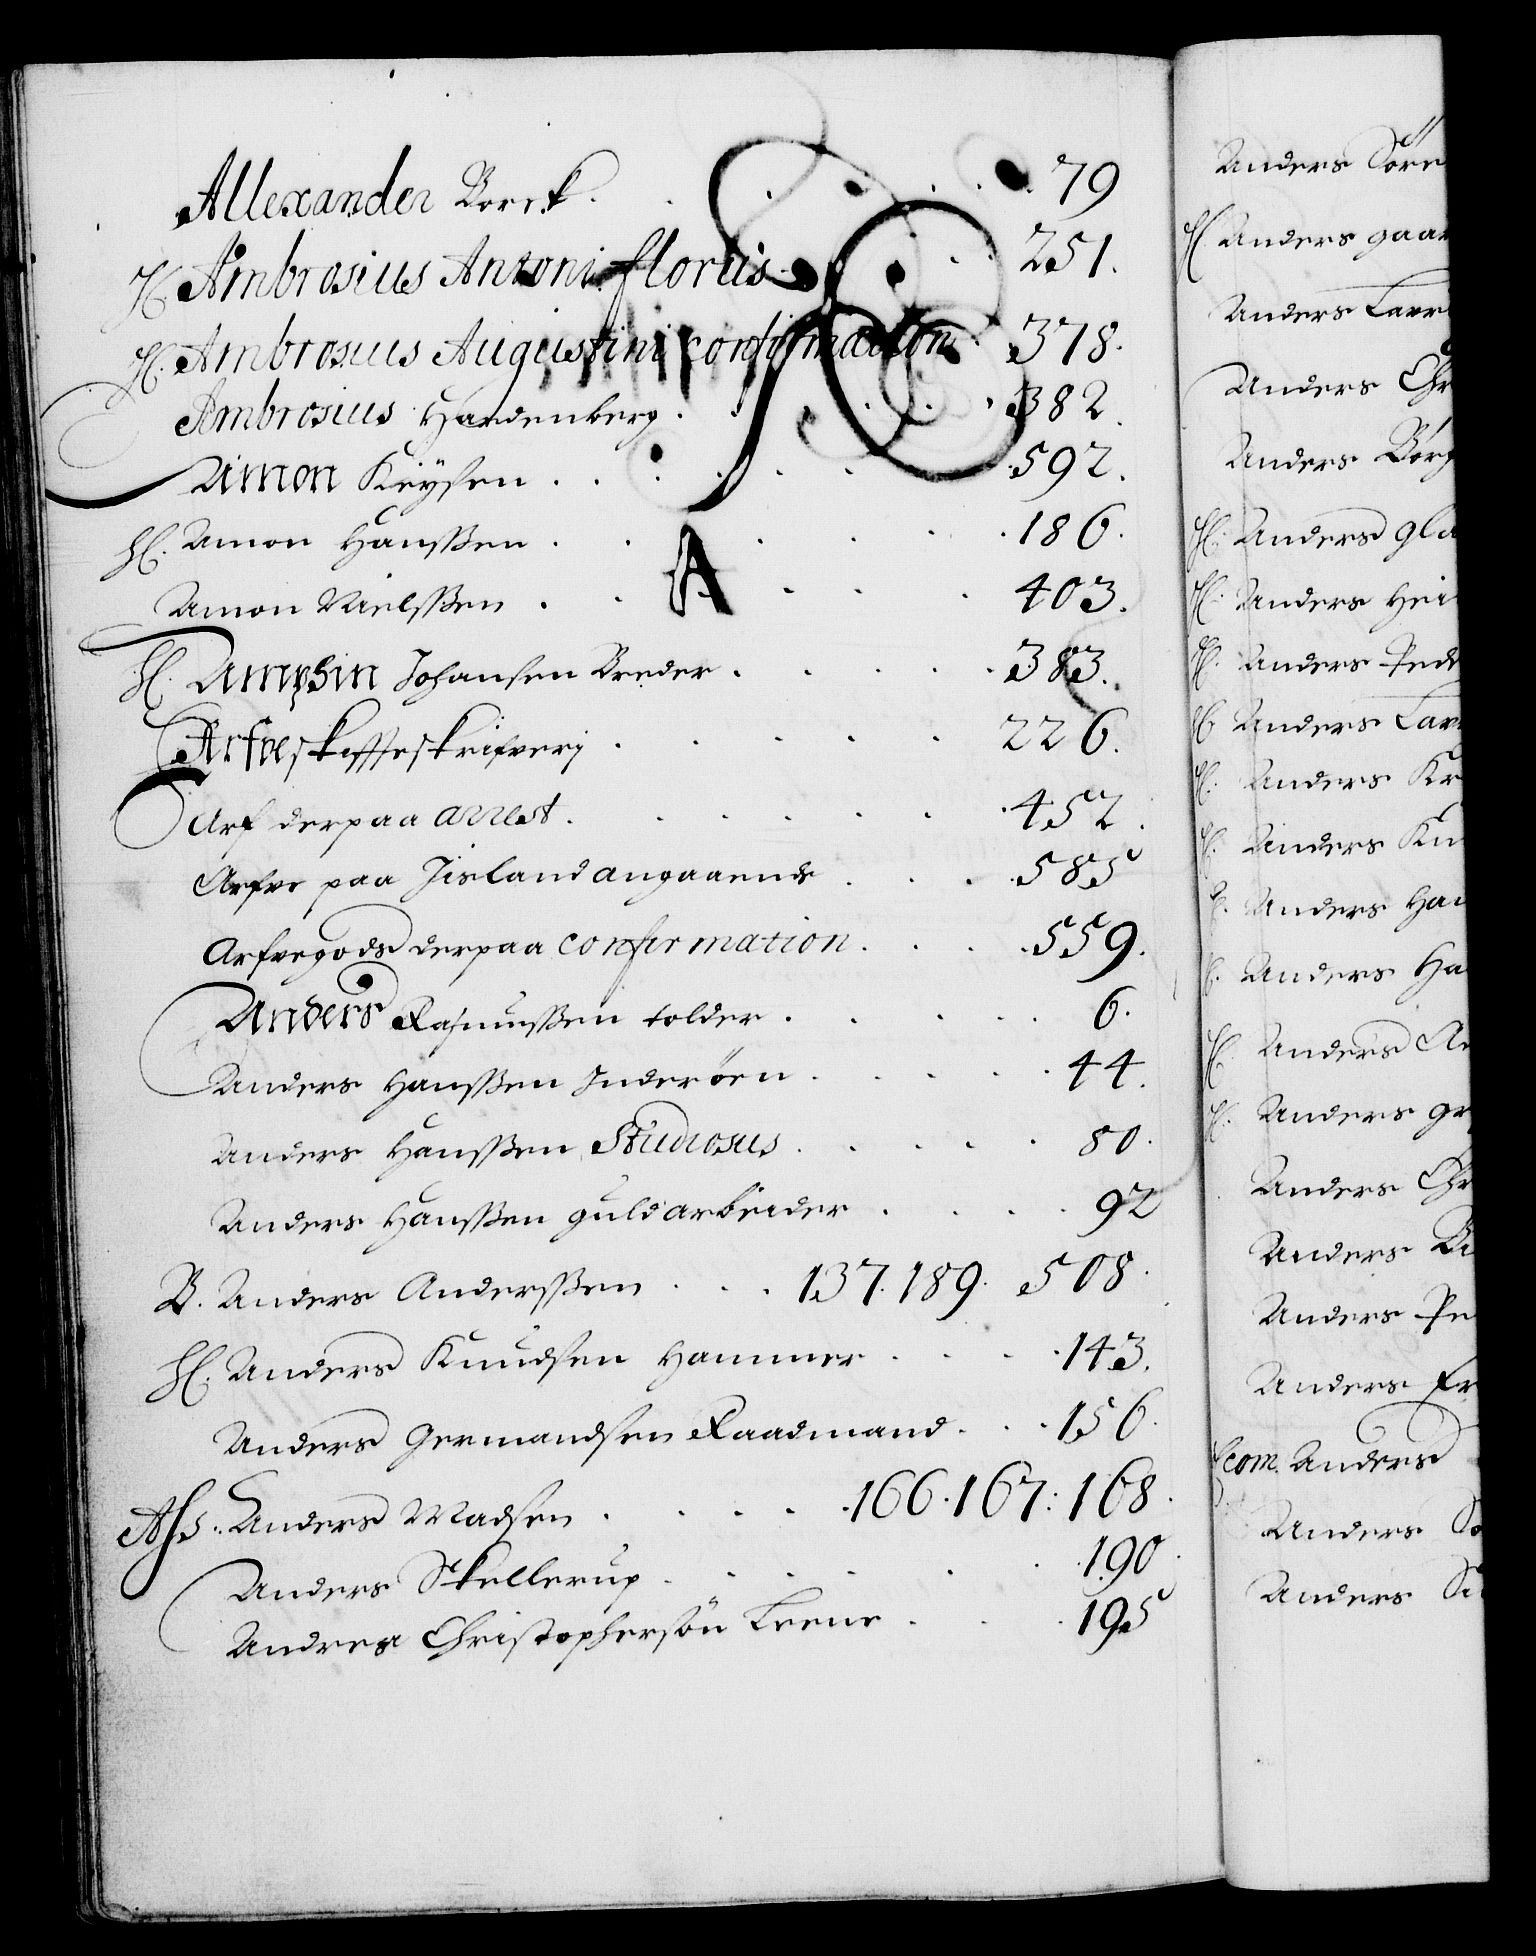 Allexander Borck. 79
H. Ambrosius Antoni florus 251.
H. Ambrosius Augustini confirmation 378.
Ambrosius Hardenberg. 382.
Amon Keÿsen. 592.
H. Amon Hanssen. 186.
A
Amon Nielssen. 403.
H. Amphin Johansen Breder. 383.
Arfveskiffteskrifveri 226.
Arf derpaa arrest. 452.
Arfve paa Jisland angaaende 585
Arfvegods derpaa confirmation. 559.
Anders Rasmussen tolder. 6.
Anders Hanssen Inderöen. 44.
Anders Hanssen Studiosus. 80.
Anders Hanssen guldarbeider. 92
B. Anders Anderssen 137. 189. 508.
H. Anders Knudsen Hammer 143.
Anders Germandsen Raadmand. 156.
Ass: Anders Madsen 166. 167: 168.
Anders Skellerup. 190.
Andrea Christophersön Leene. 195
Anders Söre
H. Anders gaar
Anders Laur
Anders Chr
Anders Börg
H. Anders gla
H. Anders Hei
H. Anders Ped
H. Anders Lar
H. Anders Kr
H. Anders Kn
H. Anders Han
H. Anders Ha
H. Anders An
H. Anders gr
Anders Chr
Anders
Anders Pe
Anders Er
com. Anders
Anders So
Anders